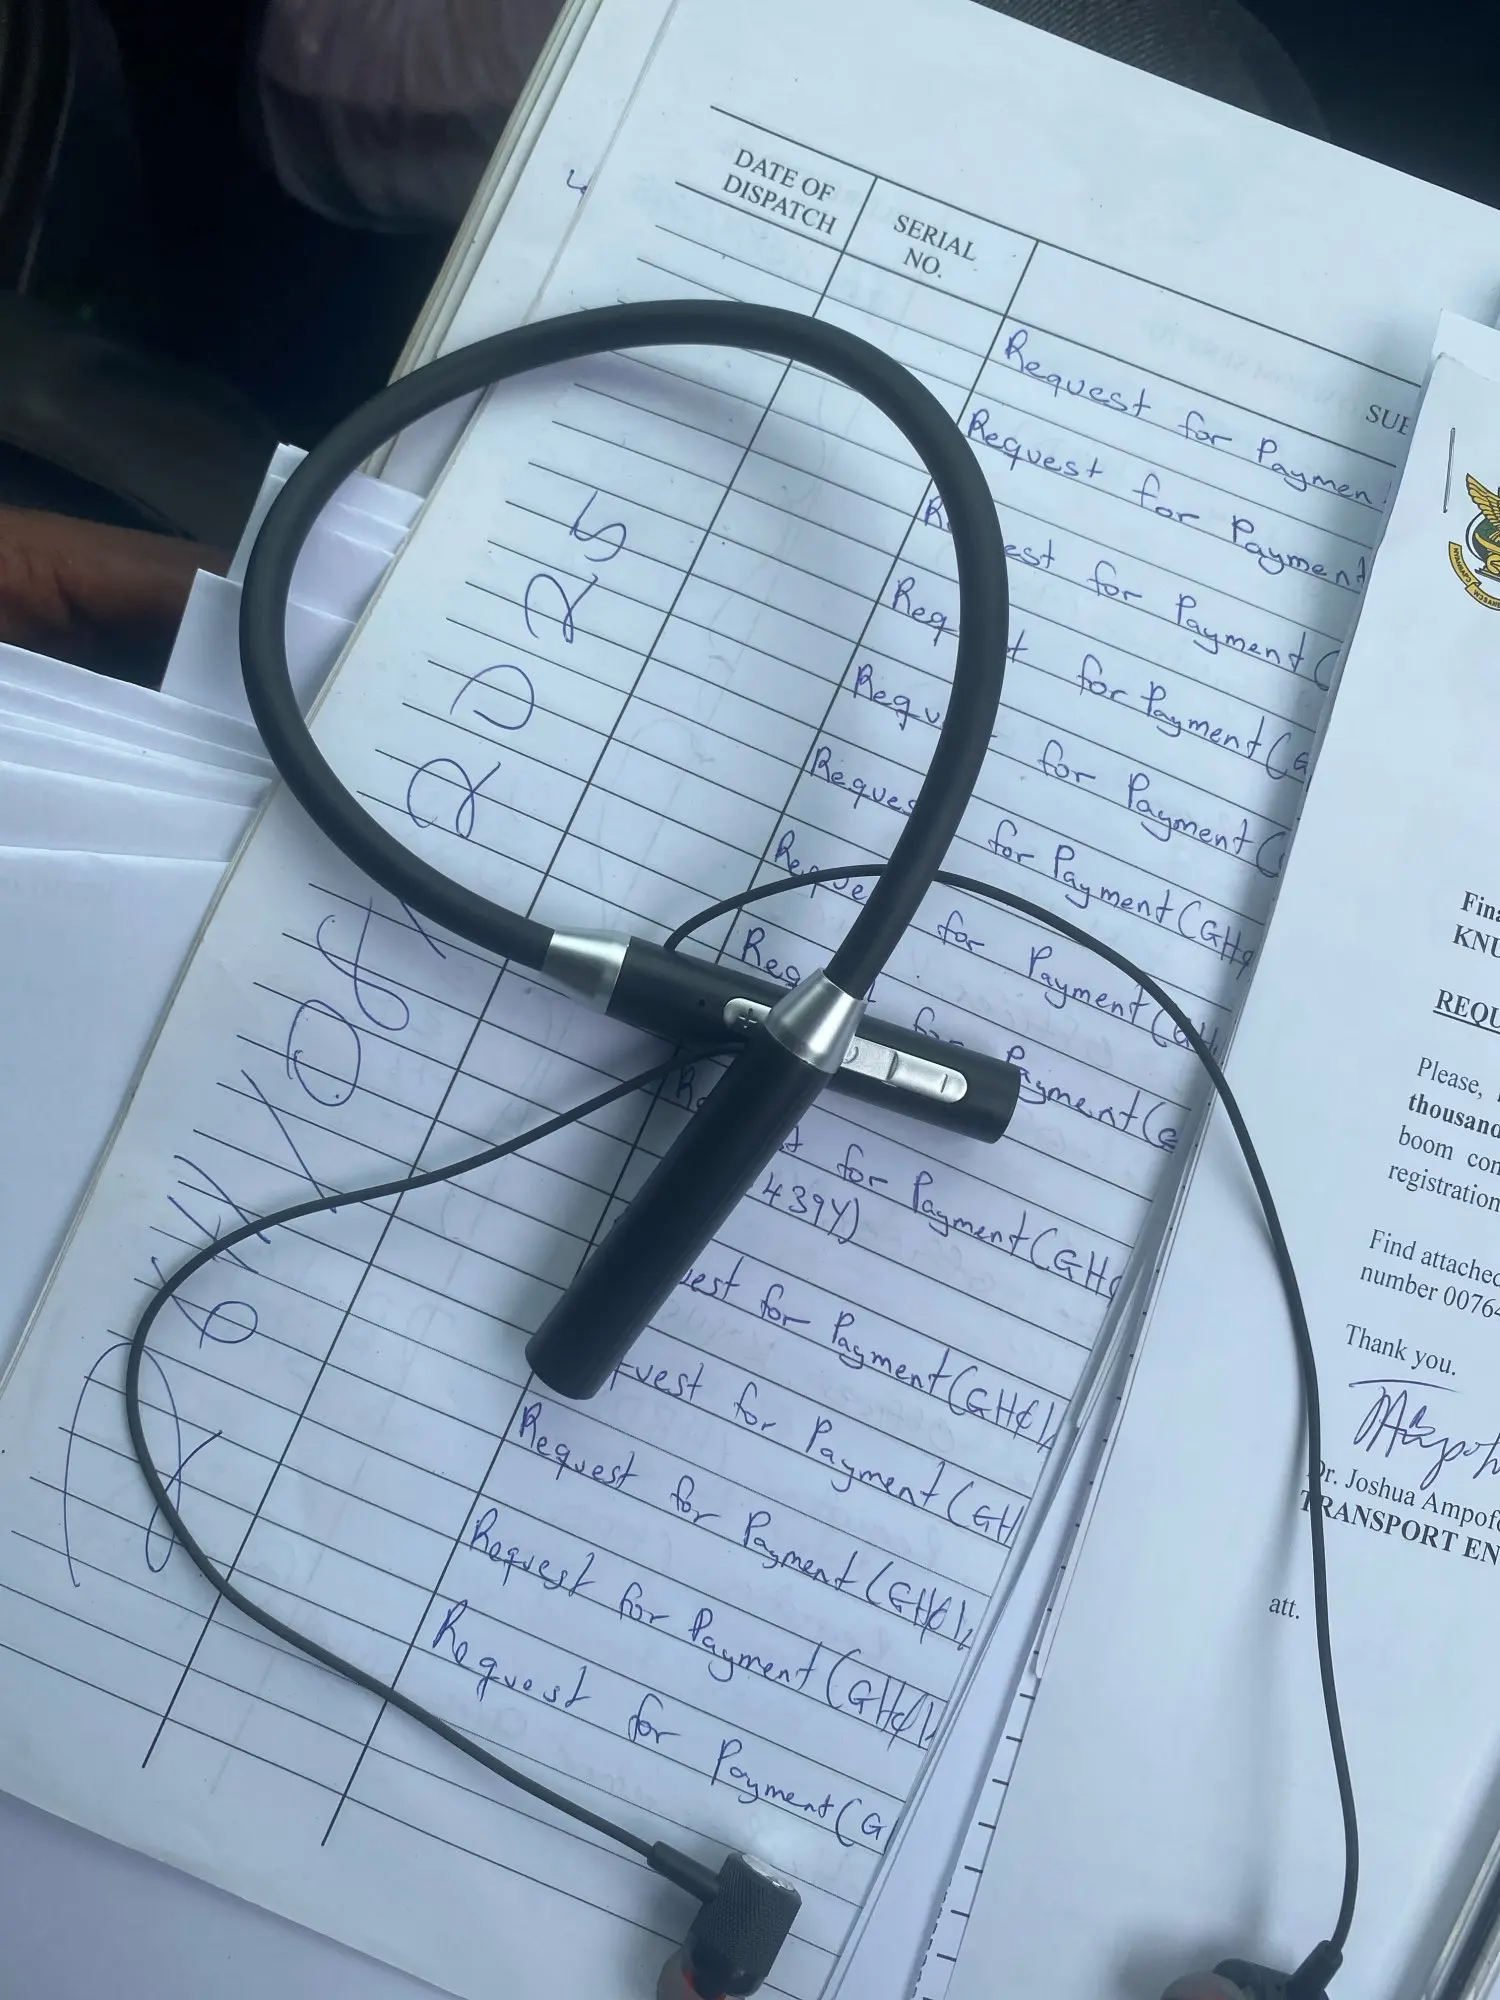 DATE OF
DISPATCH
SERIAL
NO.
SUB
Request for Payment
Request for Payment
est for Payment (
Req t for Payment (G
Requ for Payment (
Reques for Payment (GH¢
Reque for Payment (GH
Req for Payment (G
Re st for Payment (GH¢
439Y)
uest for Payment (GH¢1,
quest for Payment (GH
Request for Payment (GH¢1,
Request for Payment (GH¢1,
Request for Payment (G
2025
Fina
KNU
REQU
Please,
thousand
boom con
registration
Find attached
number 0076
Thank you.
Dr. Joshua Ampofo
TRANSPORT EN
att.